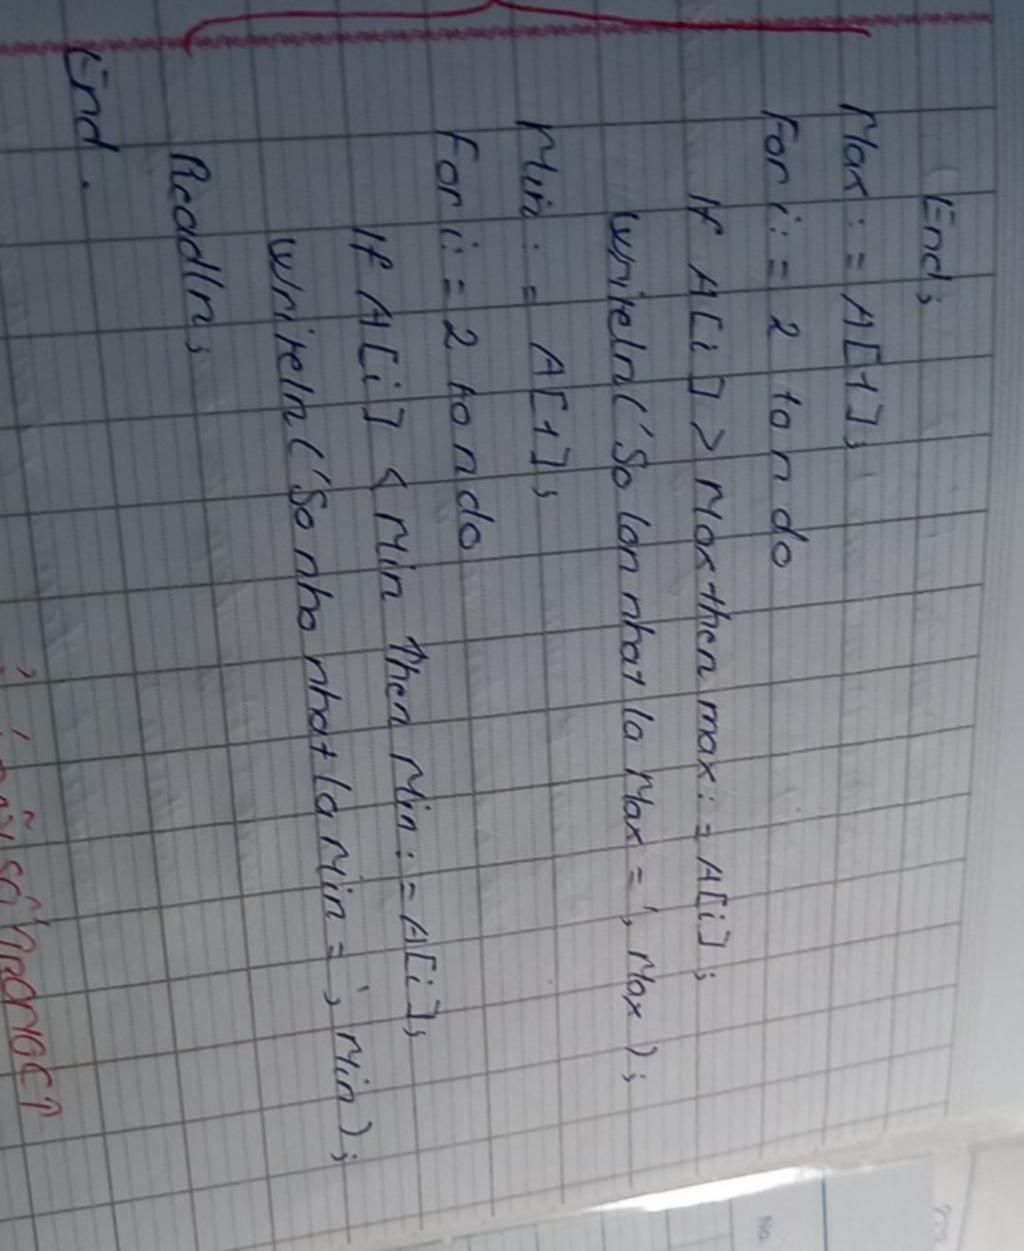 End;
Max := A[1];
For i := 2 to n do
If A[i] > Max then max := A[i];
Writeln('So lon nhat la Max = ', Max);
Min := A[1];
For i := 2 to n do
If A[i] < Min then Min := A[i];
Writeln('So nho nhat la Min = ', Min);
Readln;
End.
số
No